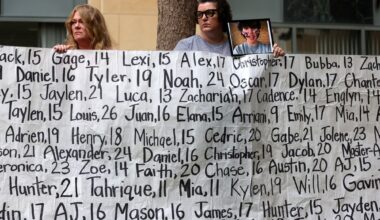 ack, 15 Gage, 14 Lexi, 15 Alex, 17 Christopher, Bubba, 13 Za
Daniel, 16 Tyler, 19 Noah, 24 Oscar, 17 Dylan, 17 Chant
5 Jaylen, 21 Luca, 13 Zachariah, 17 Cadence, 14 Englyn, 14
Jaylen, 15 Louis, 26 Juan, 16 Elana, 15 Arriani, 9 Emily, 17 Mia, 14
Adrien, 19 Henry, 18 Michael, 15 Cedric, 20 Gabe, 21 Jolene, 23
son, 21 Alexander, 24 Daniel, 16 Christopher, 19 Jacob, 20 Master
eronica, 23 Zoe, 14 Faith, 20 Chase, 16 Austin, 20 AJ, 15
Hunter, 21 Tahrique, 11 Mia, 11 Kylen, 19 Will, 16 Gavin
dyn, 17 AJ, 16 Mason, 16 James, 17 Hunter, 15 Jayden